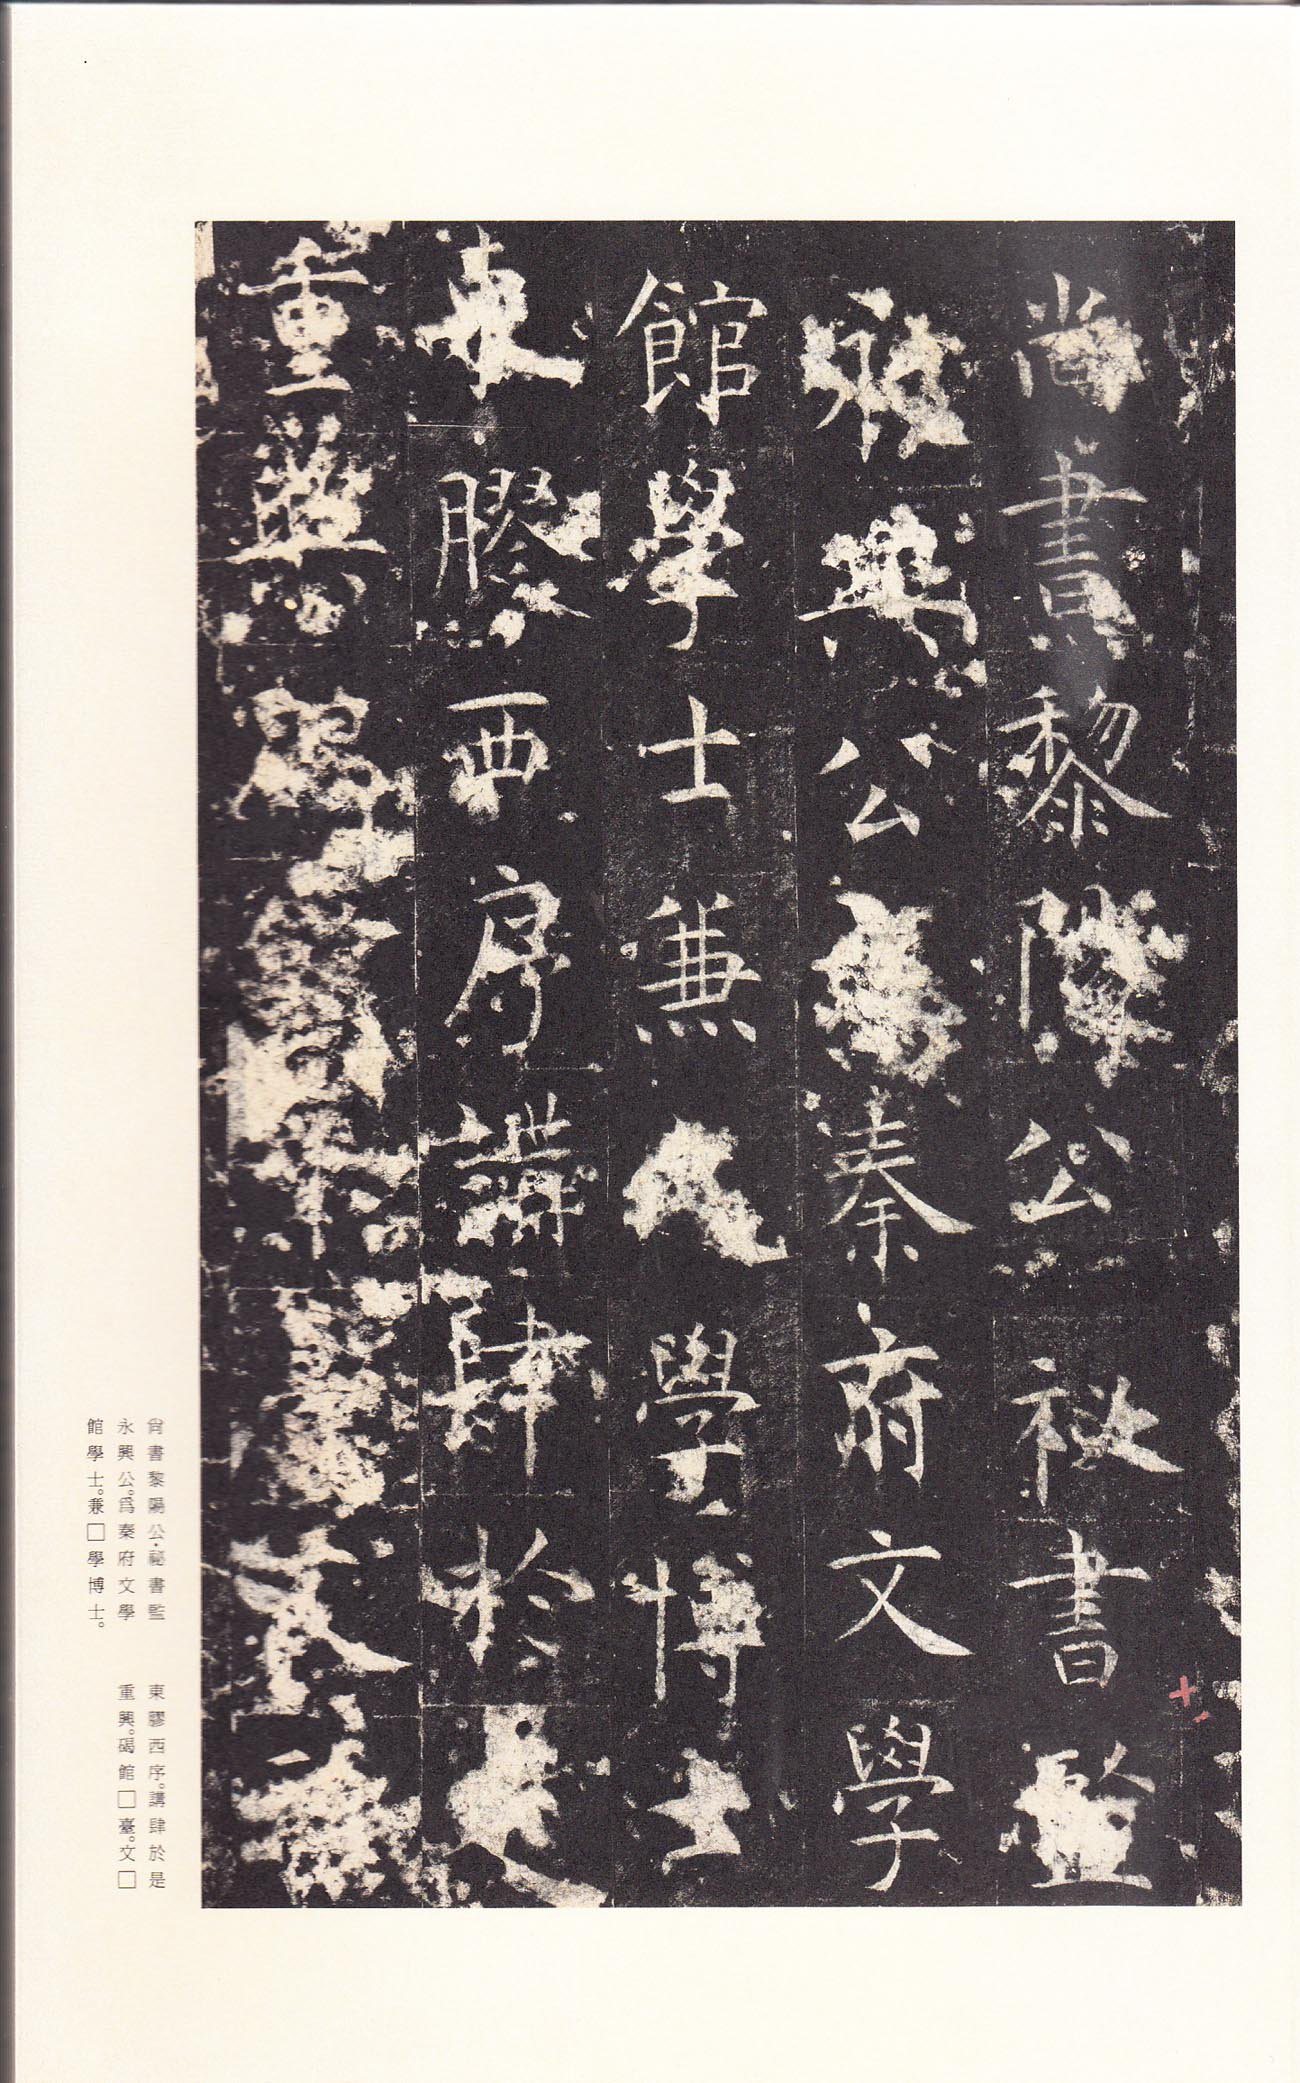 尚書黎陽公祕書監
永興公爲秦府文學
館學士兼學博士
東膠西序講肆於是
重興碣館臺文
尙書黎陽公・祕書監
永興公。爲秦府文學
館學士。兼□學博士。
東膠西序。講肆於是
重興。碣館□臺。文□